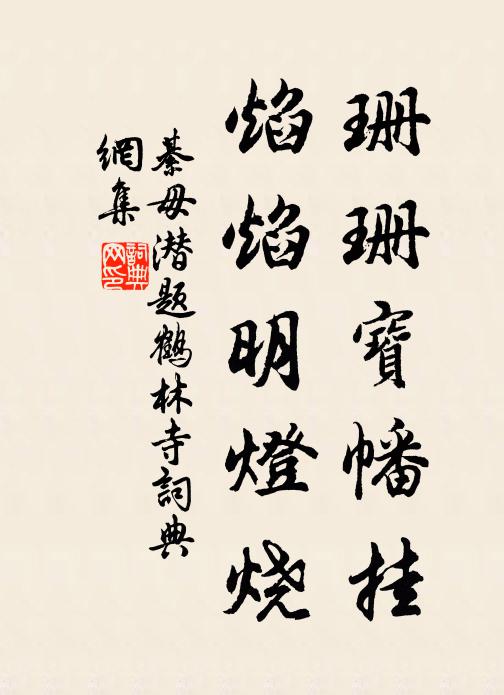 珊珊寶幡挂
焰焰明燈烧
綦毋潜题鶴林寺詞典
網集
詞典網印